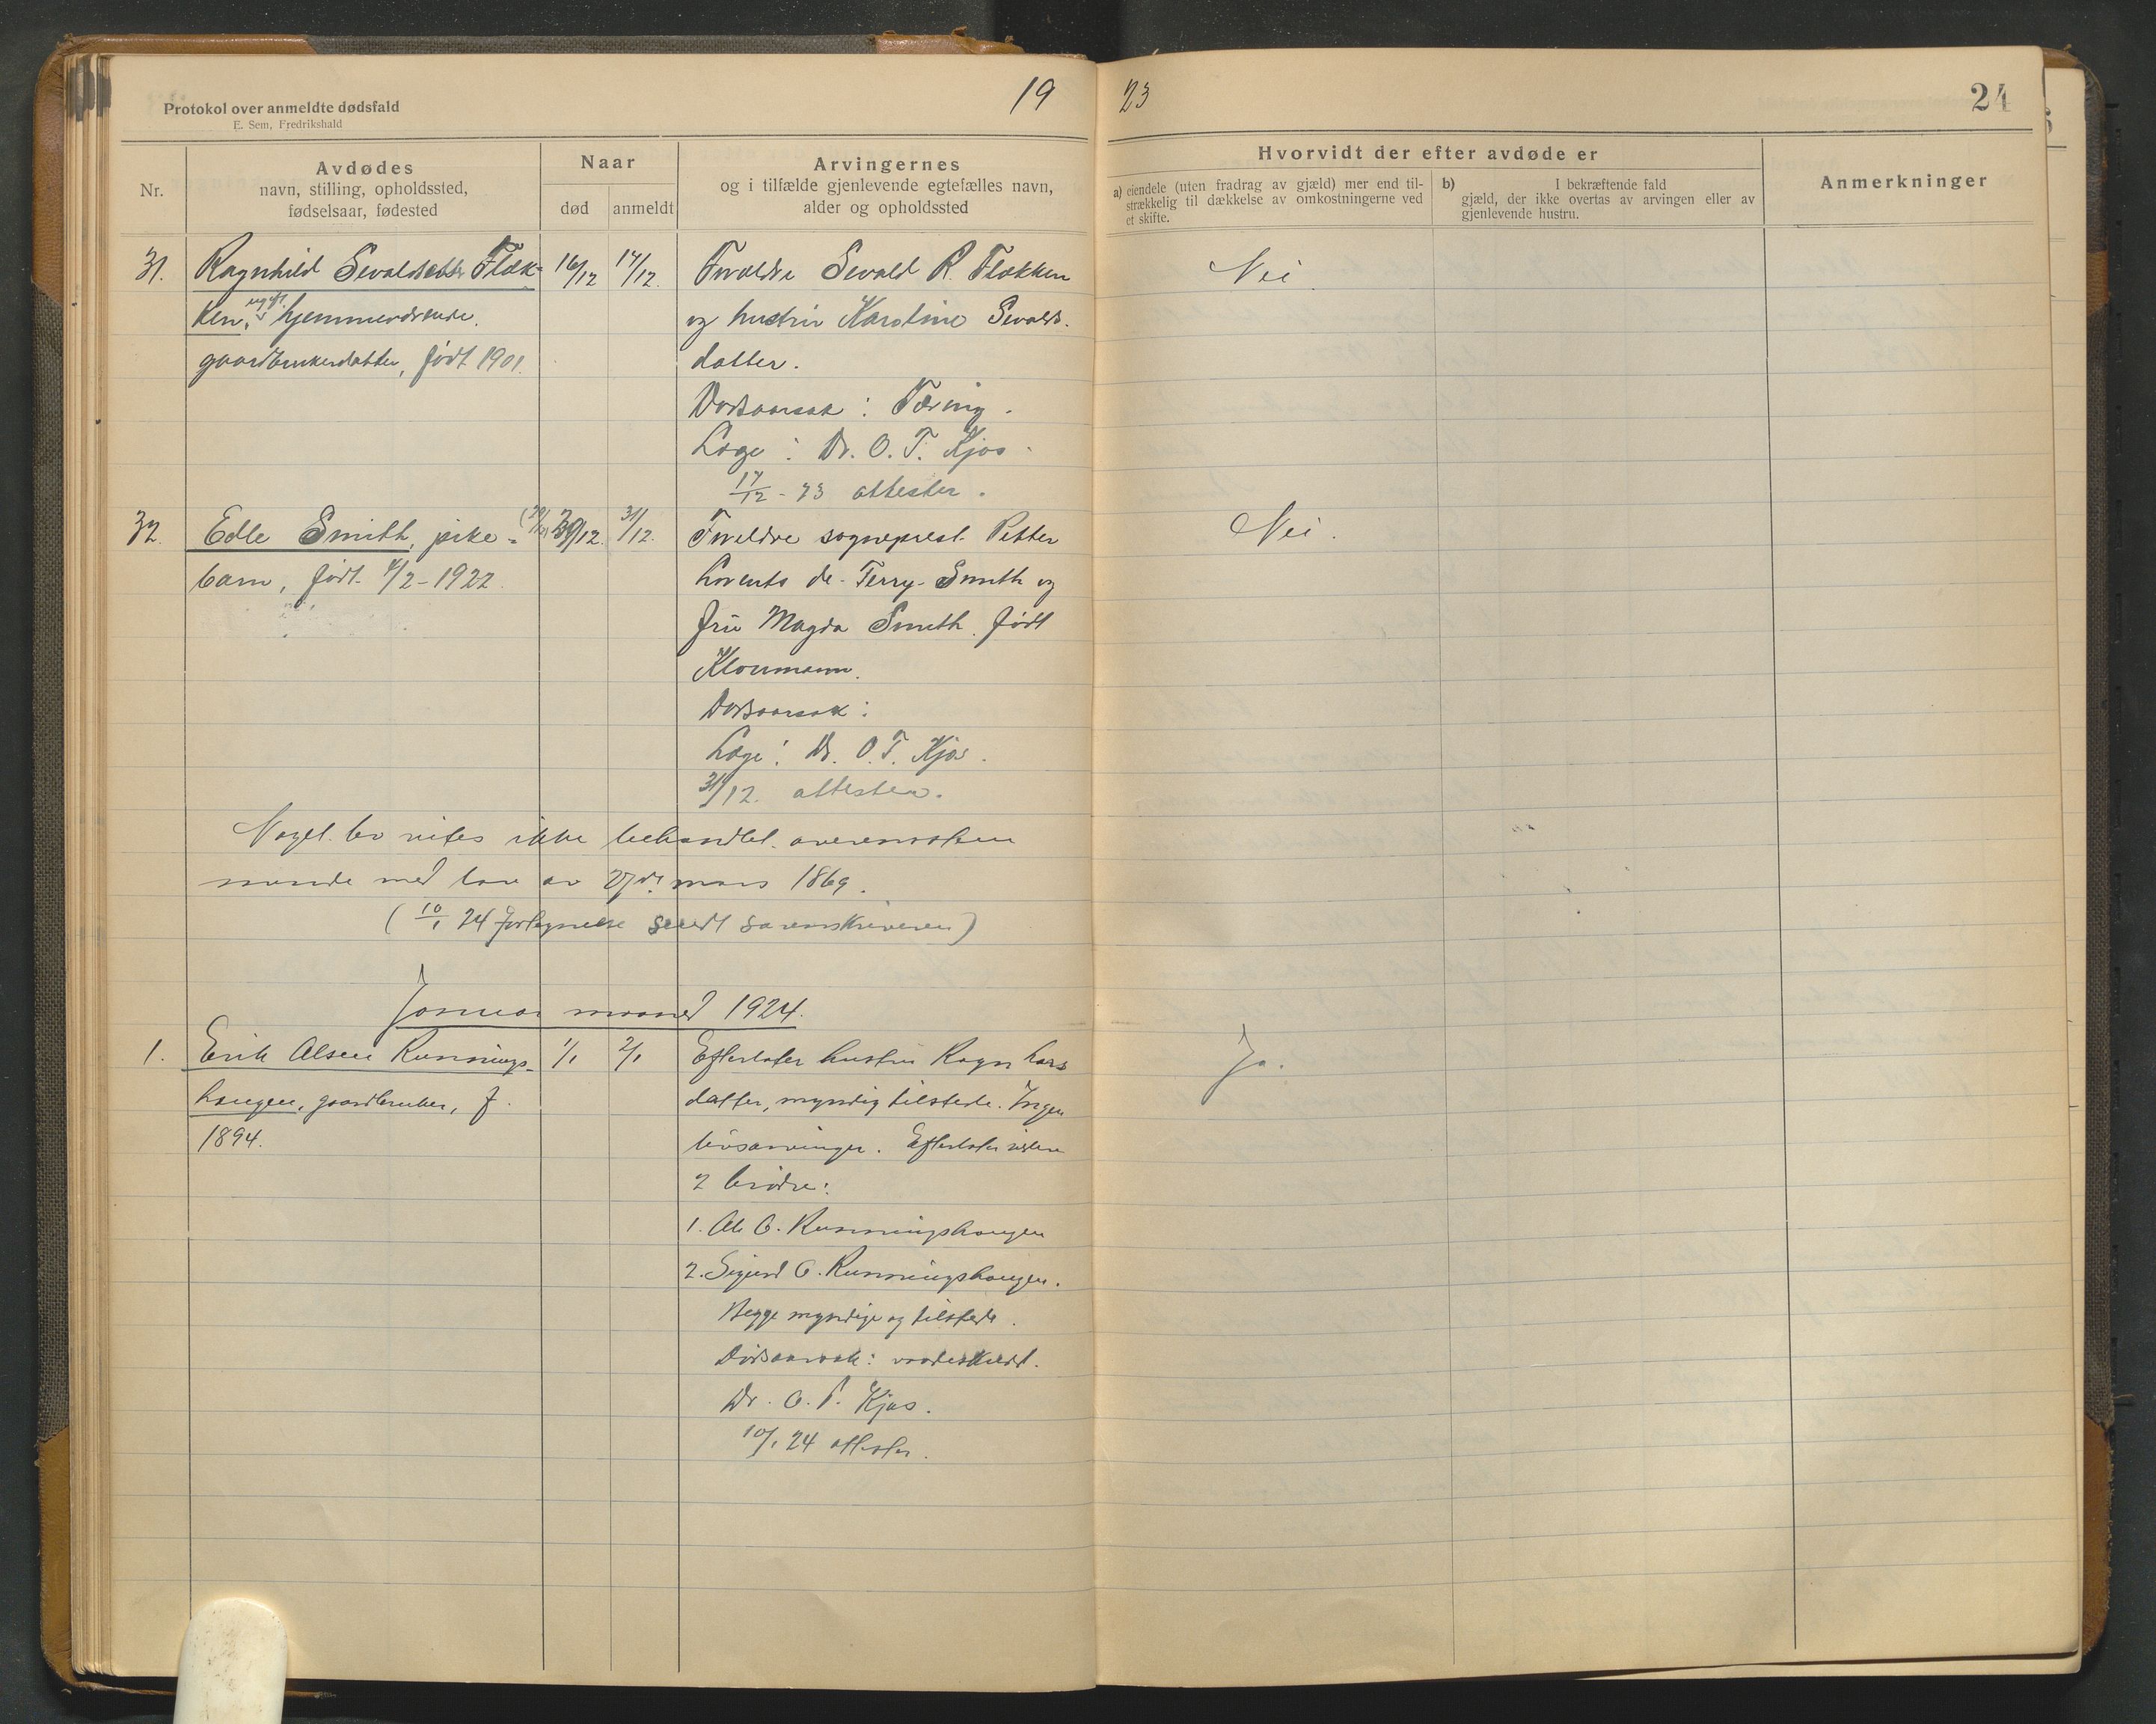 Protokol over anmeldte dødsfald
E. Sem, Fredrikshald
19
23
24
Nr.
Avdødes
navn, stilling, opholdssted,
fødselsaar, fødested
Naar
død
anmeldt
Arvingernes
og i tilfælde gjenlevende egtefælles navn,
alder og opholdssted
Hvorvidt der efter avdøde er
a) eiendele (uten fradrag av gjæld) mer end til-
strækkelig til dækkelse av omkostningerne ved
et skifte.
b) I bekræftende fald
gjæld, der ikke overtas av arvingen eller av
gjenlevende hustru.
Anmerkninger
31. Ragnhild Sevaldsdtr Flæk- 16/12 17/12. Forældre Sevald R. Flækken Nei.
ken, ugift hjemmeværende. og hustru Karoline Sevalds-
gaardbrukerdatter, født 1901. datter.
Dødsaarsak: Tæring.
Læge: Dr. O. T. Kjos.
17/12 - 23 attester.
32. Edle Smith, pike- 31/12. Foreldre sogneprest Petter Nei.
barn, født /2-1922. Lorents de-Ferry-Smith og
fru Magda Smith født
Kloumann.
Dødsaarsak:
Læge: Dr. O. T. Kjos.
31/12. attester.
ikke behandlet overensstem
mende med lov av 27de mars 1869.
(10/1 24 fortegnelse sendt sorenskriveren)
Januar maaned 1924.
1. Erik Olsen Runnings- 1/1 2/1 Efterlater hustru Ragn. Lars Ja.
haugen, gaardbruker, f. datter, myndig tilstede. Ingen
1894. livsarvinger. Efterlater videre
2 brødre:
1. Ole O. Runningshaugen
2. Sigurd O. Runningshaugen.
Begge myndige og tilstede.
Dødsaarsak: vaadeskudd.
Dr. O. T. Kjos.
10/1 24 attester.